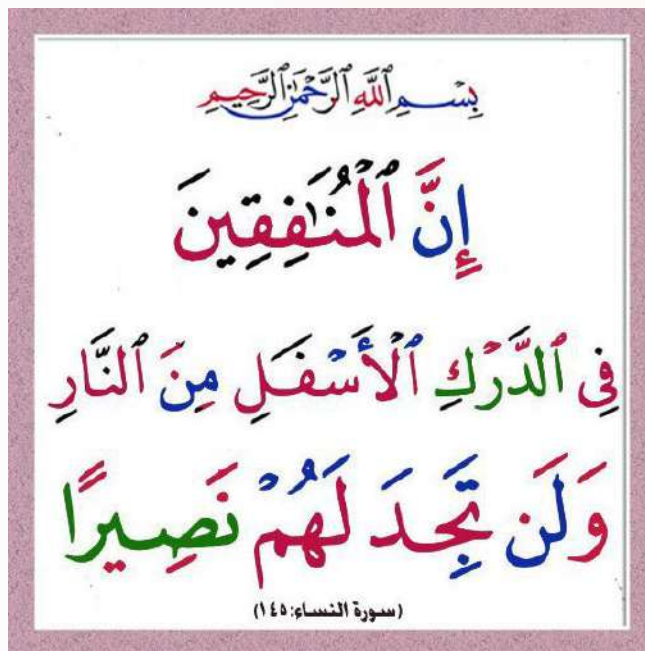 بِسْمِ ٱللَّهِ ٱلرَّحْمَٰنِ ٱلرَّحِيمِ
إِنَّ ٱلْمُنَٰفِقِينَ
فِى ٱلدَّرْكِ ٱلْأَسْفَلِ مِنَ ٱلنَّارِ
وَلَن تَجِدَ لَهُمْ نَصِيرًا
(سورة النساء: ١٤٥)